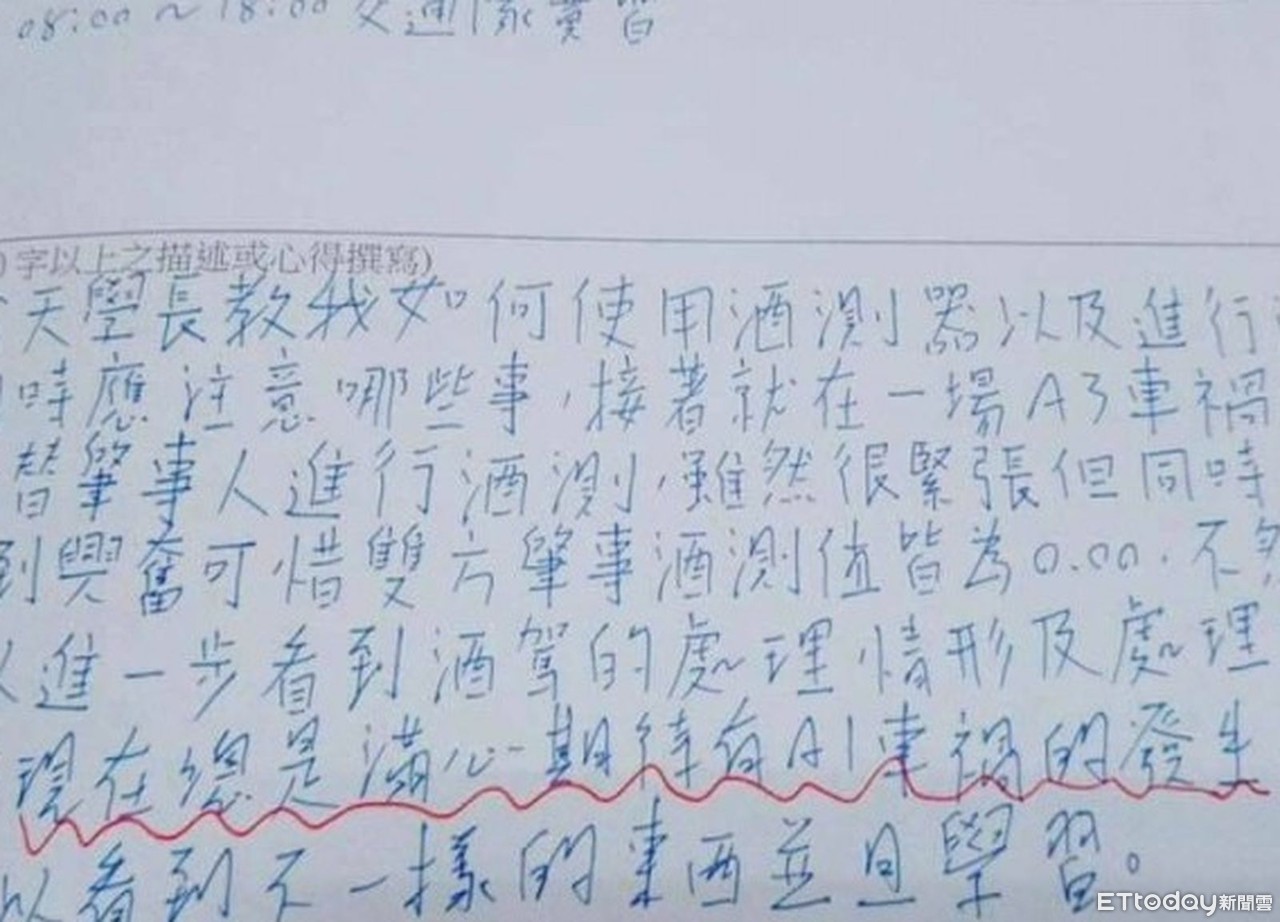 08:00～18:00 交通隊實習
)字以上之描述或心得撰寫)
天學長教我如何使用酒測器以及進行
時應注意哪些事,接著就在一場A3車禍
替肇事人進行酒測,雖然很緊張但同時
到興奮可惜雙方肇事酒測值皆為0.00.不
進一步看到酒駕的處理情形及處理
現在總是滿心期待有A1車禍的發生
以看到不一樣的東西並且學習。
ETtoday新聞雲